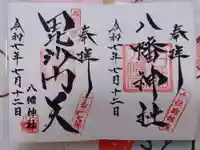 奉拝
八幡神社
令和七年七月十二日
奉拝
毘沙門天
令和七年七月十二日
八幡神社